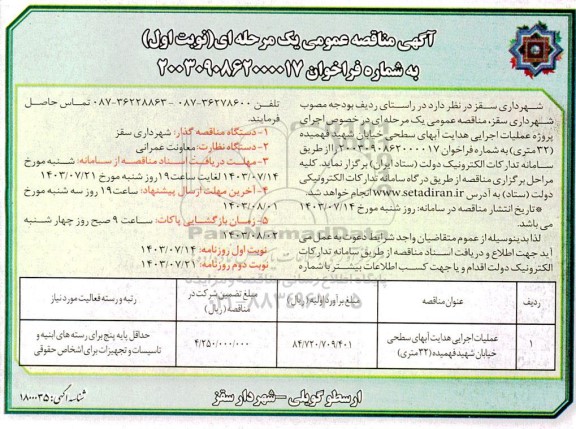 آگهی مناقصه عمومی یک مرحله ای (نوبت اول)
به شماره فراخوان ۲۰۰۳۰۹۰۸۶۲۰۰۰۰۱۷
شهرداری سقز در نظر دارد در راستای ردیف بودجه مصوب
شهرداری سقز، مناقصه عمومی یک مرحله ای در خصوص اجرای
پروژه عملیات اجرایی هدایت آبهای سطحی خیابان شهید فهمیده
(۳۲متری) به شماره فراخوان ۲۰۰۳۰۹۰۸۶۲۰۰۰۰۱۷ را از طریق
سامانه تدارکات الکترونیک دولت (ستاد ایران) برگزار نماید. کلیه
مراحل برگزاری مناقصه از طریق درگاه سامانه تدارکات الکترونیکی
دولت (ستاد) به آدرس www.setadiran.ir انجام خواهد شد.
*تاریخ انتشار مناقصه در سامانه: روز شنبه مورخ ۱۴۰۳/۰۷/۱۴
می باشد.
لذا بدینوسیله از عموم متقاضیان واجد شرایط دعوت به عمل می
آید جهت اطلاع و دریافت اسناد مناقصه از طریق سامانه تدارکات
الکترونیک دولت اقدام و یا جهت کسب اطلاعات بیشتر با شماره
تلفن ۳۶۲۷۸۶۰۰-۰۸۷ ۳۶۲۲۸۸۶۳-۰۸۷ تماس حاصل
فرمایند.
۱- دستگاه مناقصه گذار: شهرداری سقز
۲- دستگاه نظارت: معاونت عمرانی
۳- مهلت دریافت اسناد مناقصه از سامانه: شنبه مورخ
۱۴۰۳/۰۷/۱۴ لغایت ساعت ۱۹ روز شنبه مورخ ۱۴۰۳/۰۷/۲۱
۴- آخرین مهلت ارسال پیشنهاد: ساعت ۱۹ روز سه شنبه مورخ
۱۴۰۳/۰۸/۰۱
۵- زمان بازگشایی پاکات: ساعت ۹ صبح روز چهار شنبه
۱۴۰۳/۰۸/۰۲
نوبت اول روزنامه: ۱۴۰۳/۰۷/۱۴
نوبت دوم روزنامه: ۱۴۰۳/۰۷/۲۱
ردیف عنوان مناقصه مبلغ برآورد اولیه (ریال) مبلغ تضمین شرکت در مناقصه (ریال) رتبه و رسته فعالیت مورد نیاز
۱ عملیات اجرایی هدایت آبهای سطحی خیابان شهید فهمیده (۳۲متری) ۸۴/۷۲۰/۷۰۹/۴۰۱ ۴/۲۵۰/۰۰۰/۰۰۰ حداقل پایه پنج برای رسته های ابنیه و تاسیسات و تجهیزات برای اشخاص حقوقی
ارسطو گویلی - شهردار سقز
شناسه آگهی: ۱۸۰۰۰۳۵
ParsNamadData